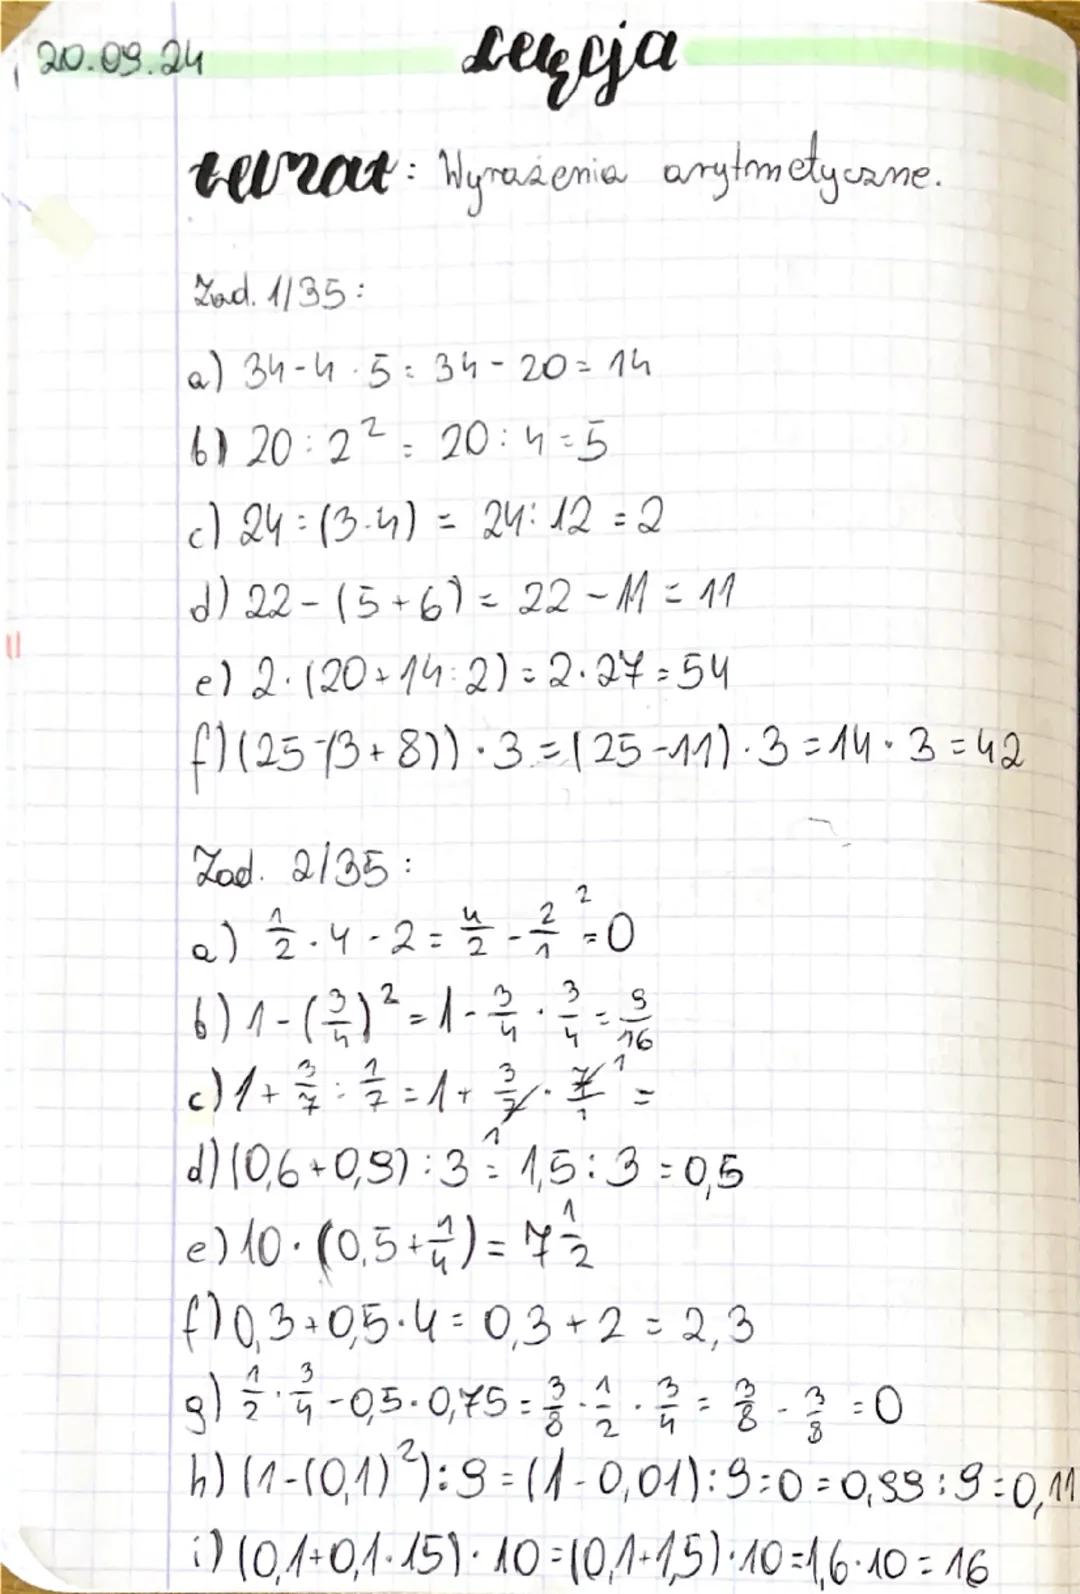 20.09.24 Lekcja
temat: Wyrażenia arytmetyczne.
Zad. 1/35:
a) 34-4·5=34-20=14
b) 20:2²=20:4=5
c) 24:(3·4)=24:12=2
d) 22-(5+6)=22-11=11
e) 2·(20+14:2)=2·27=54
f) (25-(3+8))·3=(25-11)·3=14·3=42
Zad. 2/35:
a) 1/2·4-2=4/2-2/1 ²=0
b) 1-(3/4)²=1-3/4·3/4=9/16
c) 1+3/7:1/7=1+3/7·7/1 ¹=
1
d) (0,6+0,9):3=1,5:3=0,5
e) 10·(0,5+1/4)=7 1/2
f) 0,3+0,5·4=0,3+2=2,3
g) 1/2·3/4-0,5·0,75=3/8-1/2·3/4=3/8-3/8=0
h) (1-(0,1)²):9=(1-0,01):9=0=0,99:9=0,11
i) (0,1+0,1·15)·10=(0,1+1,5)·10=1,6·10=16